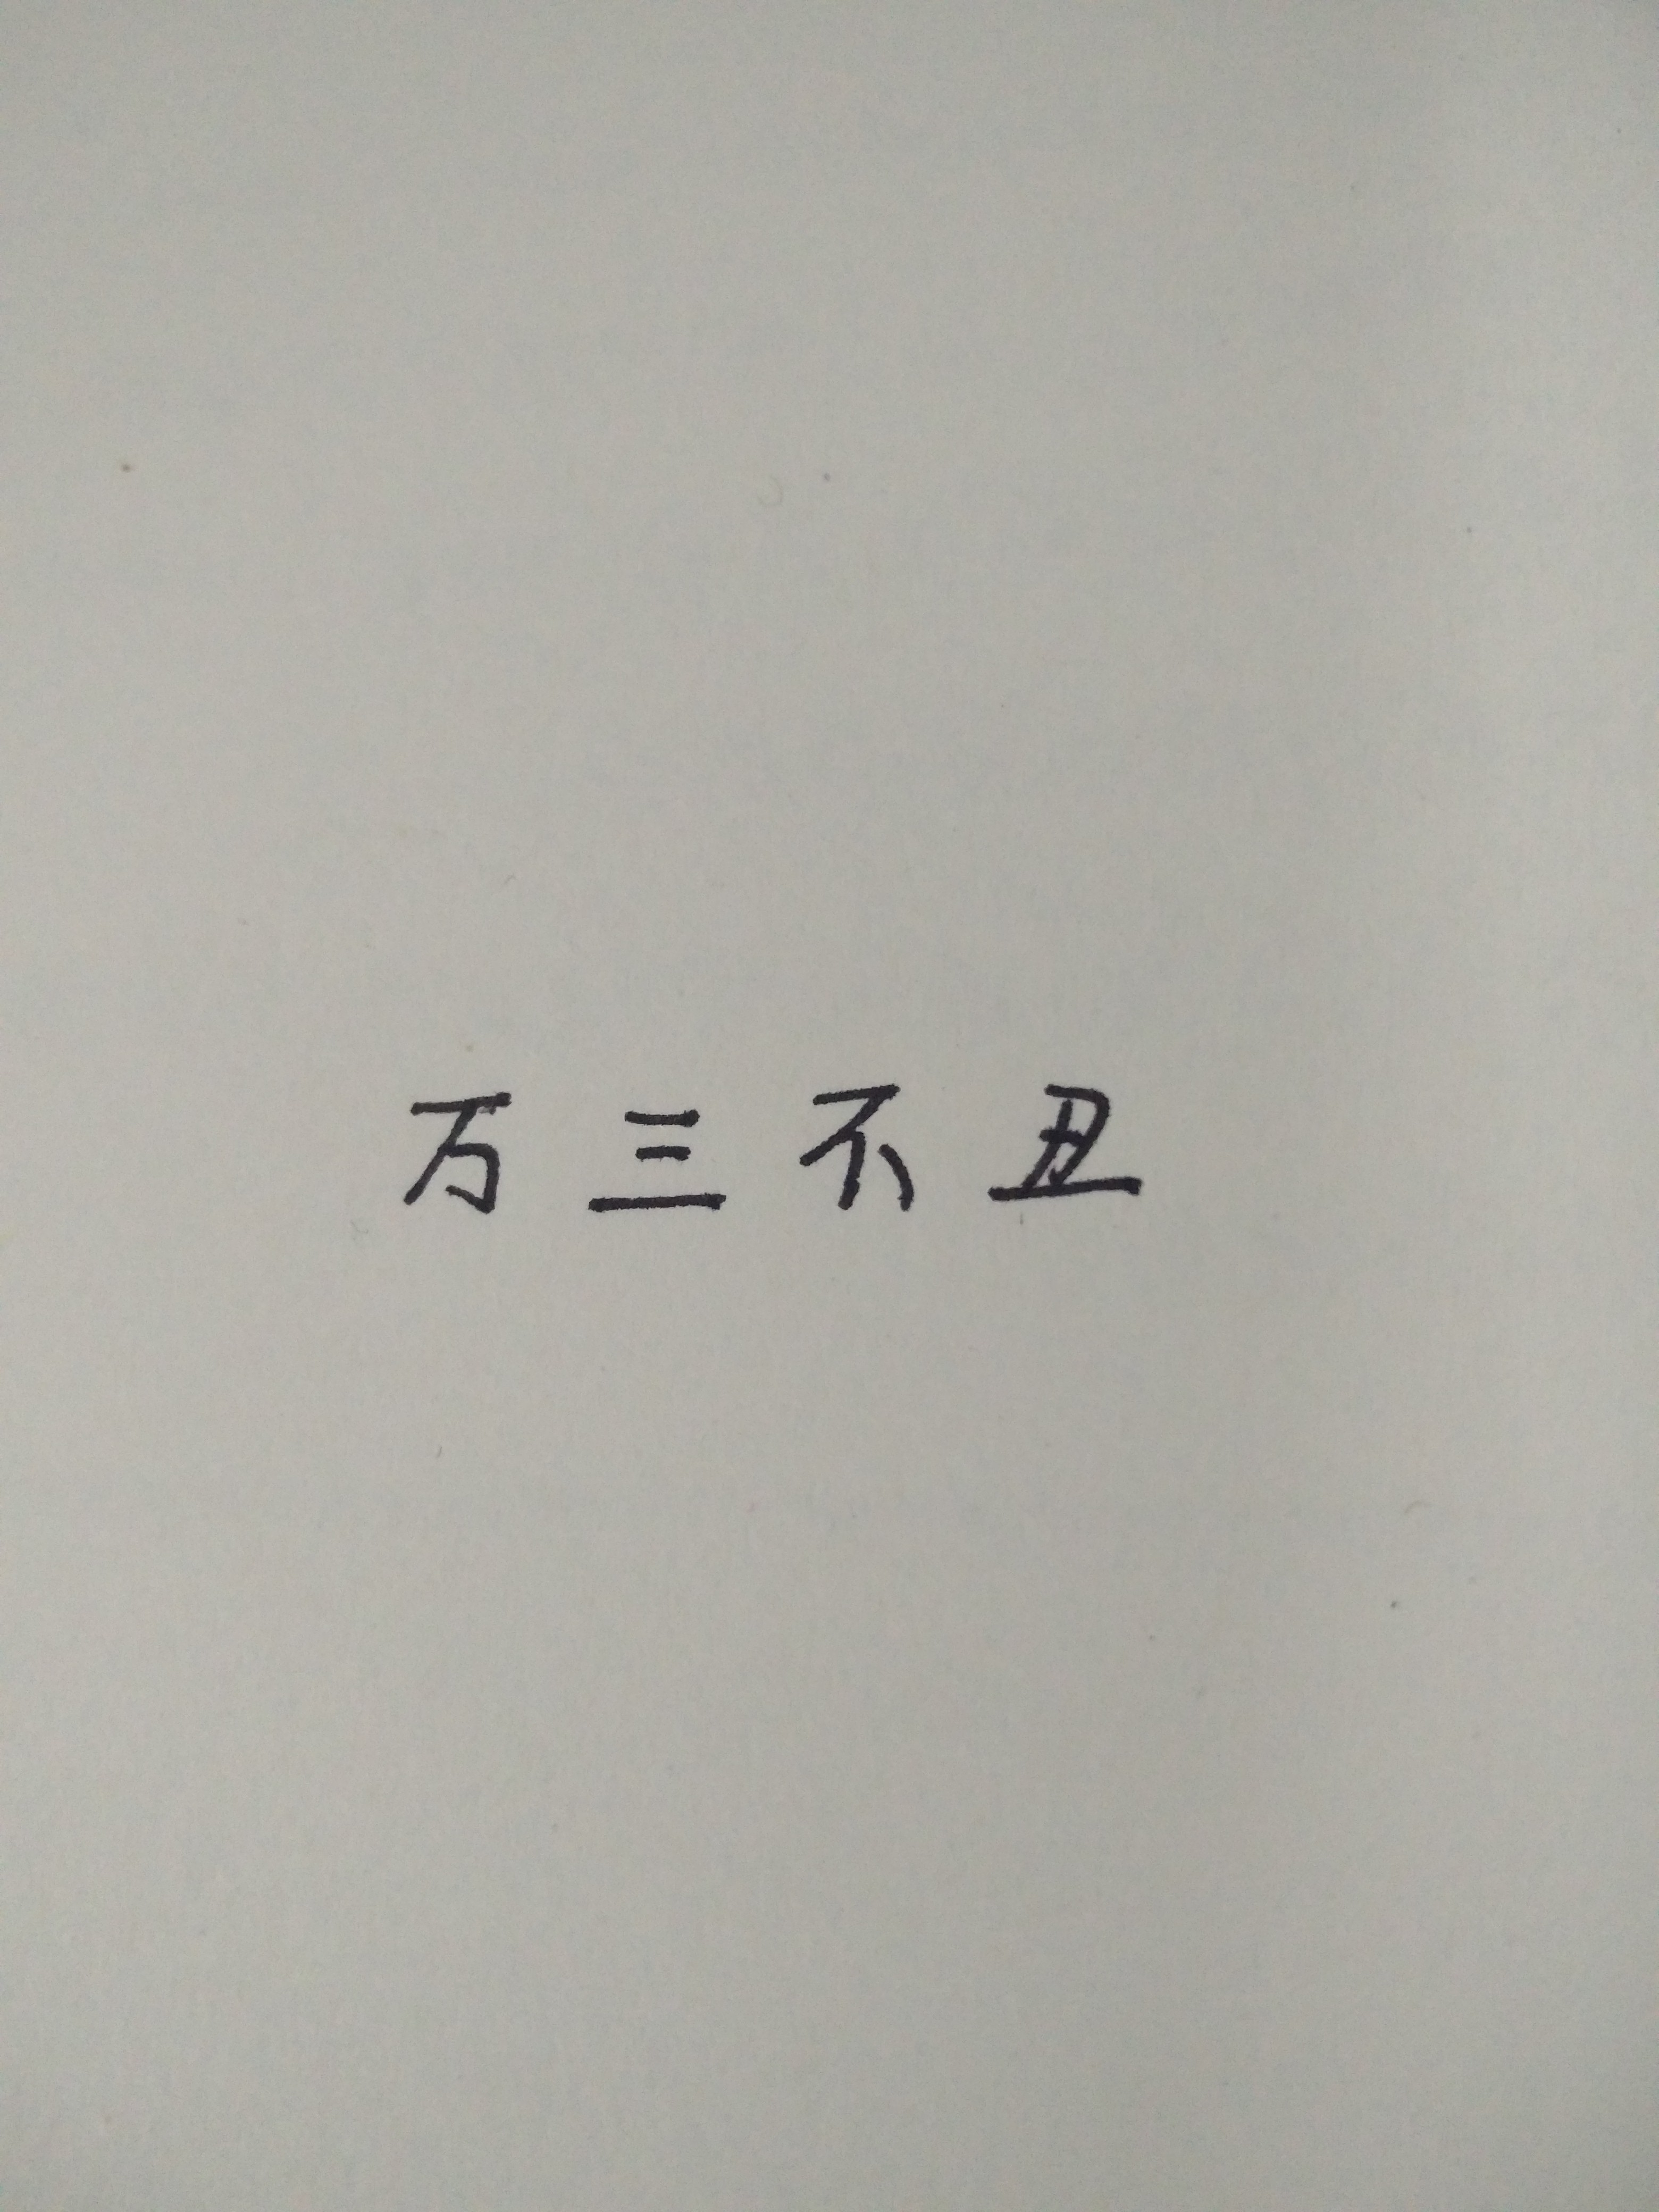 万三不丑